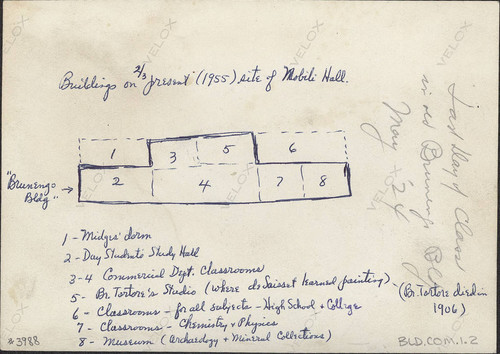 Buildings on 2/3 present (1955) site of Mobile Hall.
Last Day of Class
in old Brunengo Bldg
May '24
1 3 5 6
2 4 7 8
"Brunengo
Bldg"
1 - Midges' dorm
2 - Day Students Study Hall
3-4 Commercial Dept. Classrooms
5 - Br. Tortore's Studio (where de Saisset learned painting)
(Br. Tortore died in
1906)
6 - Classrooms - for all subjects - High School & College
7 - Classrooms - Chemistry & Physics
8 - Museum (Archaeology & Mineral Collections)
#3988
BLD.COM.1.2
VELOX
VELOX
VELOX
VELOX
VELOX
VELOX
VELOX